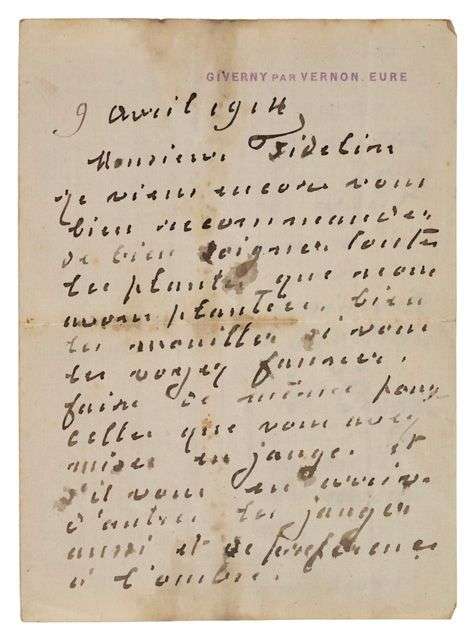 GIVERNY PAR VERNON. EURE
9 Avril 1914
Monsieur Fidelin
Je viens encore vous
bien recommander
de bien soigner toutes
les plantes que nous
avons plantées, bien
les mouiller si vous
les voyez fanner,
faire de même pour
celles que vous avez
mises en jauge. et
s'il vous en arrive
d'autres les jauger
aussi et de préférence
à l'ombre.